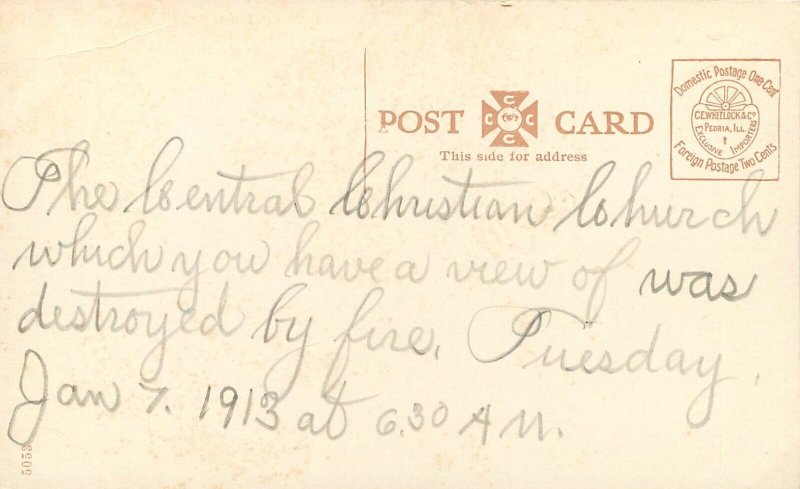 Domestic Postage One Cent
C.E. WHEELOCK & CO
PEORIA, ILL.
EXCLUSIVE IMPORTERS
Foreign Postage Two Cents
POST CARD
C
C C
C
This side for address
The Central Christian Church
which you have a view of was
destroyed by fire, Tuesday,
Jan 7. 1913 at 6.30 A M.
5053